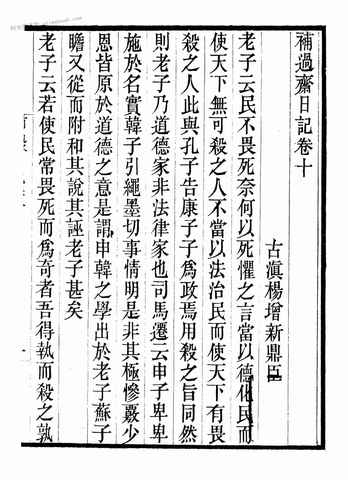 補過齋日記卷十
古滇楊增新鼎臣
老子云民不畏死奈何以死懼之言當以德化民而
使天下無可殺之人不當以法治民而使天下有畏
殺之人此與孔子告康子子為政焉用殺之旨同然
則老子乃道德家非法律家也司馬遷云申子卑卑
施於名實韓子引繩墨切事情明是非其極慘覈少
恩皆原於道德之意是謂申韓之學出於老子蘇子
瞻又從而附和其說其誣老子甚矣
老子云若使民常畏死而為奇者吾得執而殺之孰